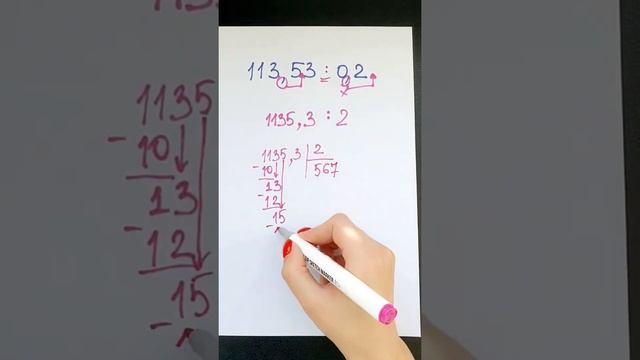 113,53 : 0,2
1135,3 : 2
1135,3 | 2
- 10 567
13
- 12
15
-